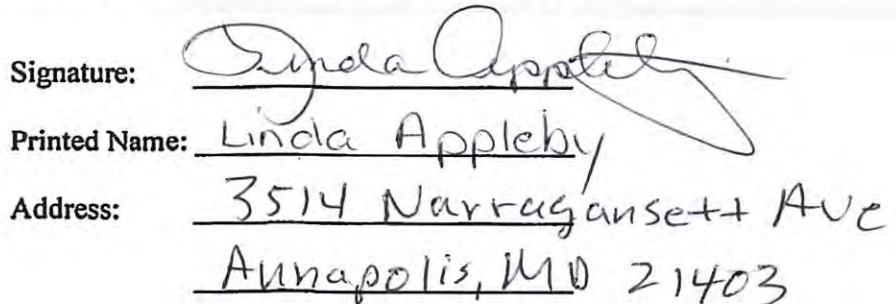 Signature: Lynda Appleby
Printed Name: Linda Appleby
Address: 3514 Narragansett Ave
Annapolis, MD 21403